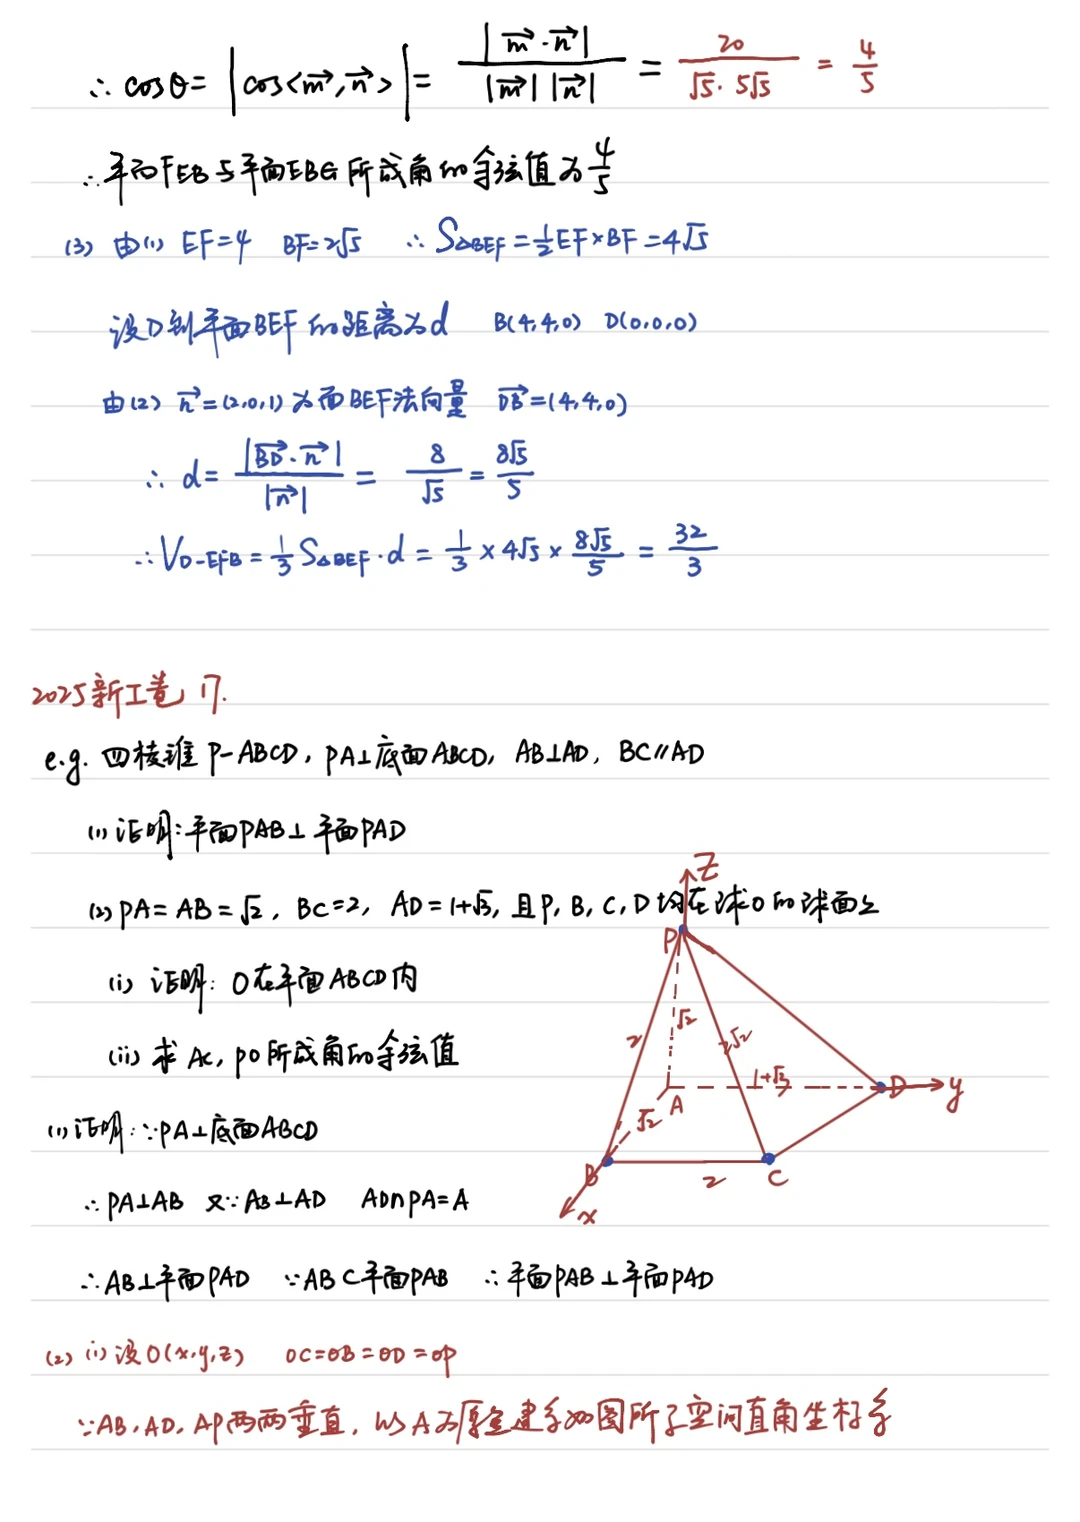 ∴ cosθ = |cos<m⃗,n⃗>| = |m⃗·n⃗| / |m⃗||n⃗| = 20 / √5·5√5 = 4/5
∴平面FEB与平面EBG所成角的余弦值为4/5
(3) 由(1) EF=4 BF=2√5 ∴ S△BEF = 1/2 EF×BF = 4√5
设D到平面BEF的距离为d B(4,4,0) D(0,0,0)
由(2) n⃗=(2,0,1)为面BEF法向量 DB⃗=(4,4,0)
∴ d = |BD⃗·n⃗| / |n⃗| = 8/√5 = 8√5/5
∴ V D-EFB = 1/3 S△BEF·d = 1/3 × 4√5 × 8√5/5 = 32/3
2025新I卷 17.
e.g. 四棱锥 P-ABCD, PA⊥底面ABCD, AB⊥AD, BC∥AD
(1) 证明:平面PAB⊥平面PAD
(2) PA=AB=√2, BC=2, AD=1+√3, 且P,B,C,D均在球O的球面上
(i) 证明: O在平面ABCD内
(ii) 求AC, PO所成角的余弦值
z
P
2
√2
2√2
1+√3
A
D
y
√2
B
2
C
x
(1) 证明:∵PA⊥底面ABCD
∴PA⊥AB 又∵AB⊥AD AD∩PA=A
∴AB⊥平面PAD ∵AB⊂平面PAB ∴平面PAB⊥平面PAD
(2) (i) 设O(x,y,z) OC=OB=OD=OP
∵AB,AD,AP两两垂直, 以A为原点建系如图所示空间直角坐标系